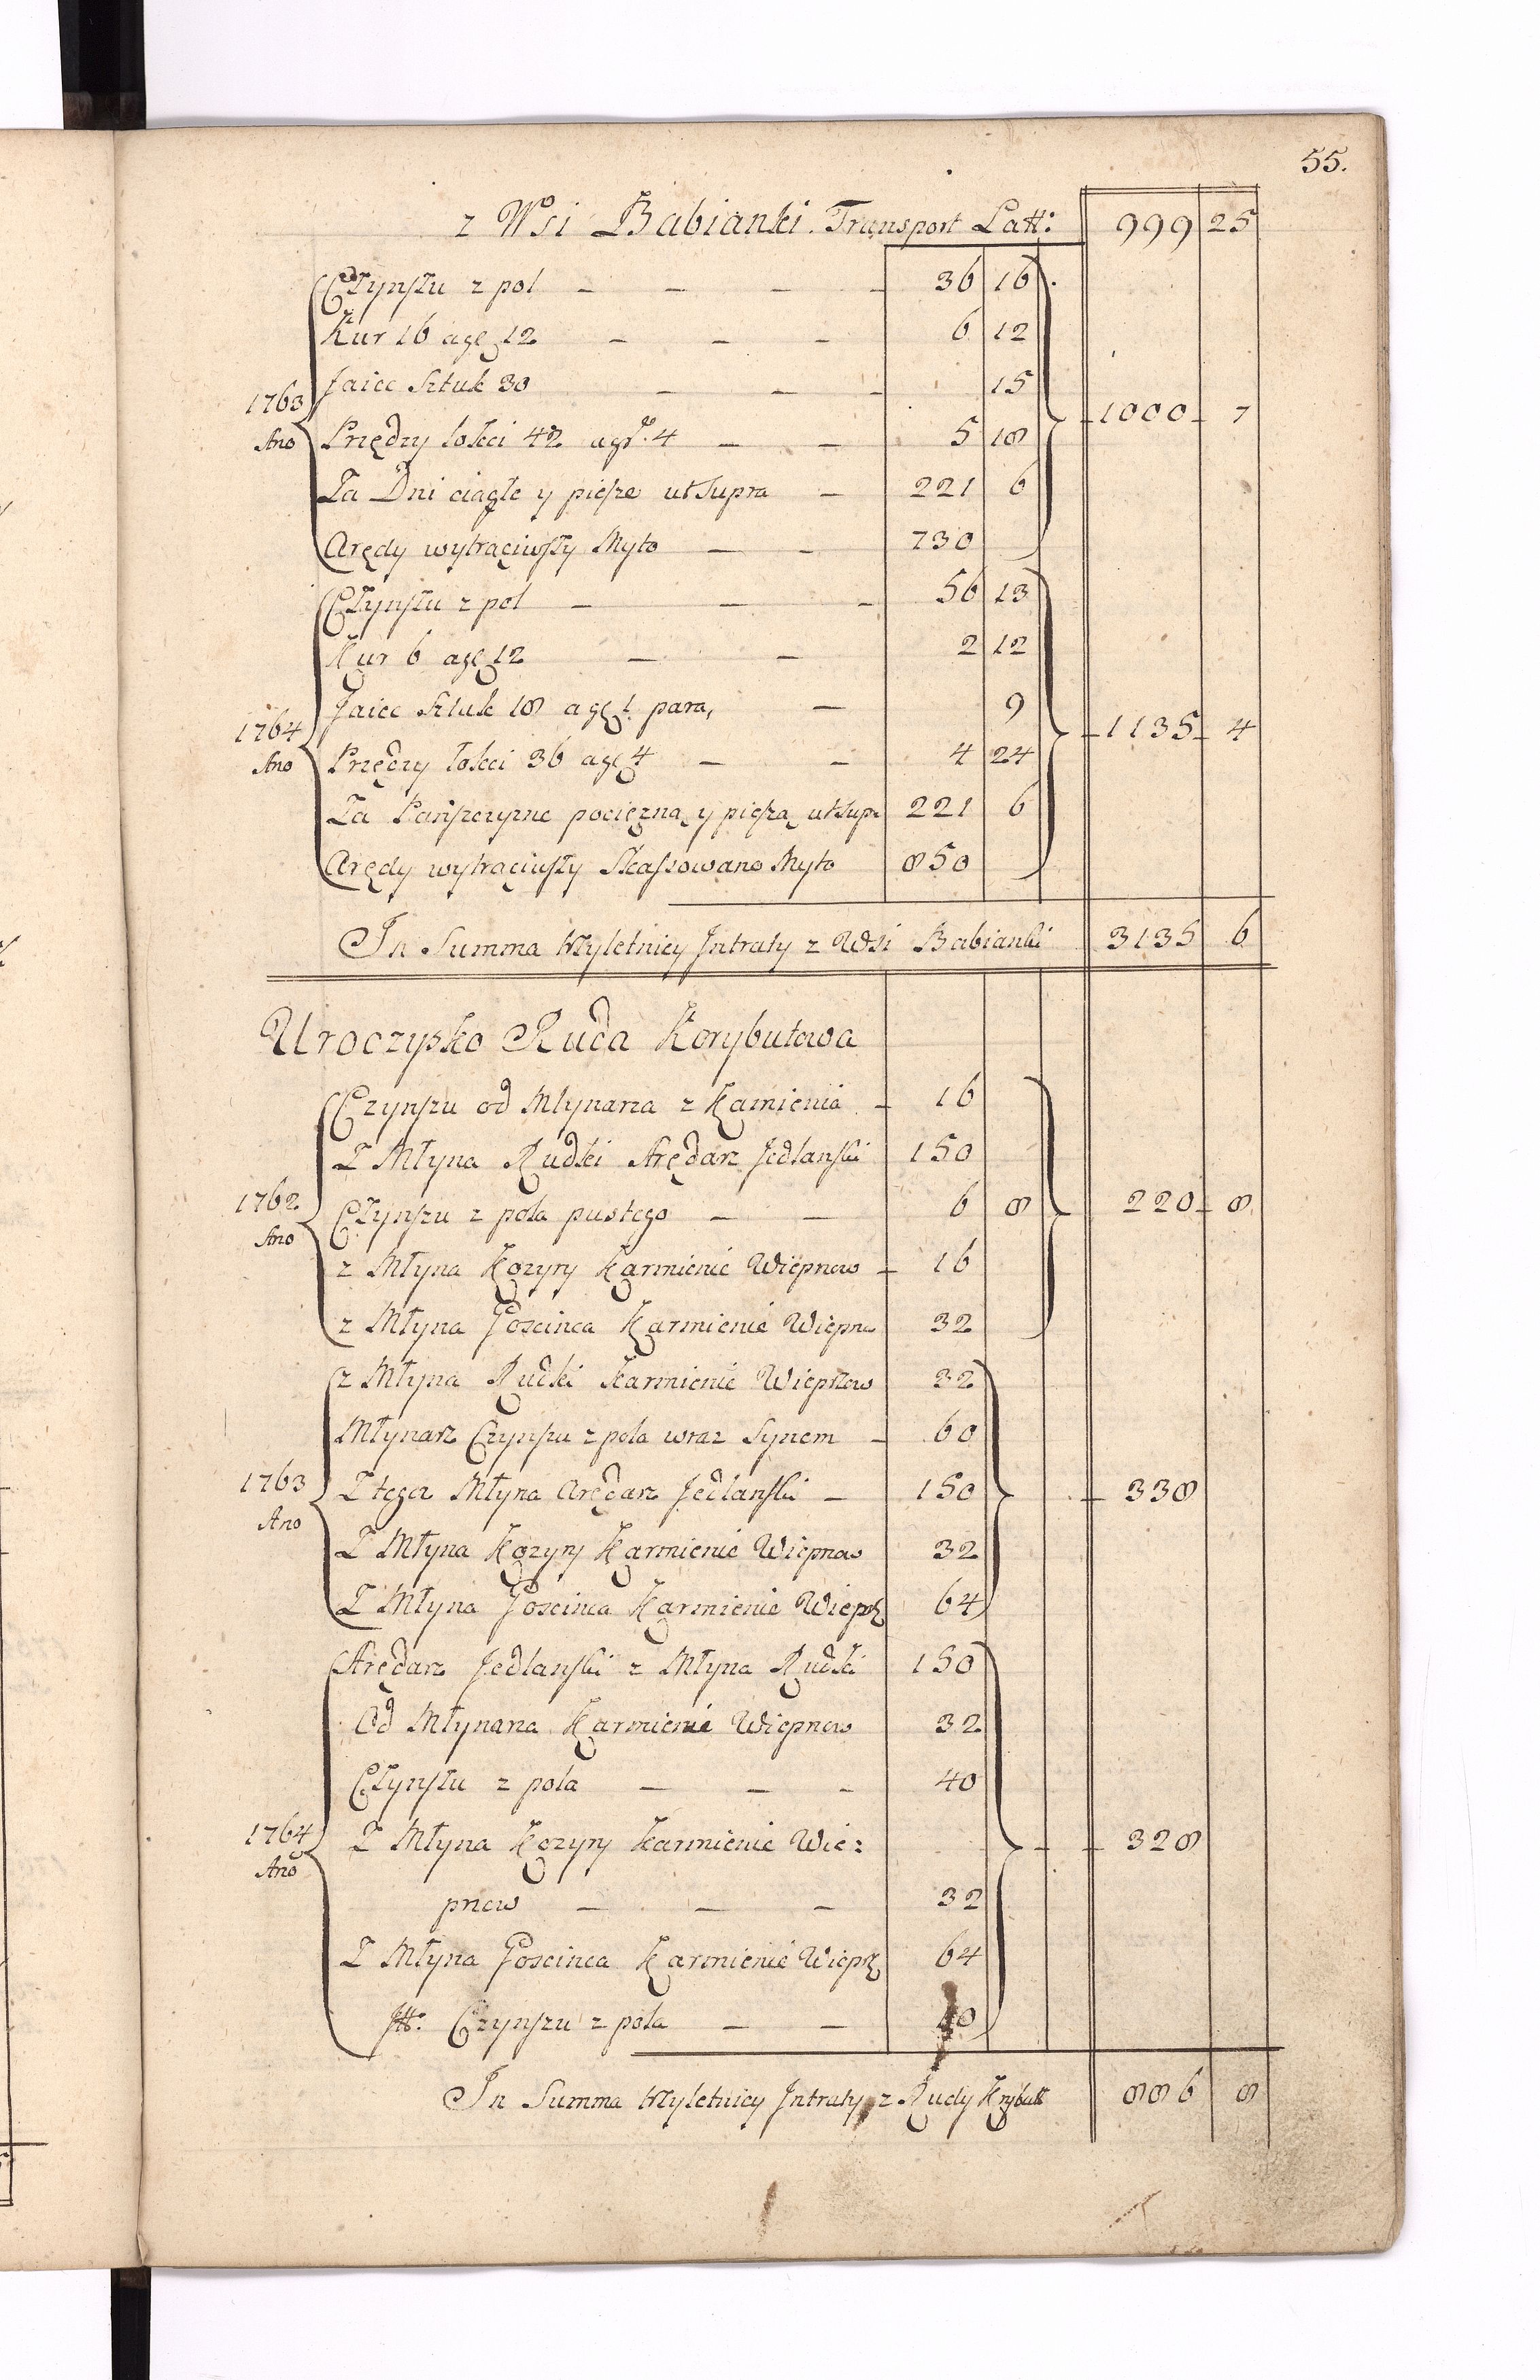 55.
z Wsi Babianki. Transport Latt: 999 25
Czynszu z pol - - - - 36 16
Kur 16 a gę 12 - - - 6 12
Jaiec Sztuk 30 - - - 15
1763 - 1000 - 7
Ano Przędzy łokci 42 a gr. 4 - - 5 18
Za Dni ciągłe y piesze ut Supra - 221 6
Arędy wytrąciwszy Myto - - 730
Czynszu z pol - - - 56 13
Kur 6 a gę 12 - - 2 12
Jaiec Sztuk 18 a gę 1 para, - 9
1764 - 1135 - 4
Ano Przędzy łokci 36 a gę 4 - - 4 24
Za Pańszczyznę pociężną y pieszą ut Supr 221 6
Arędy wytrąciwszy Skassowano Myto 850
In Summa trzyletnicy Jntraty z Wsi Babianki 3135 6
Uroczysko Ruda Korybutowa
Czynszu od Młynarza z Kamienia - 16
Z Młyna Rudki Arędarz Jedlanski 150
1762 Czynszu z pola pustego - - 6 8 220 - 8
Ano
z Młyna Kozyry Karmienie Wieprzow - 16
z Młyna Goscinca Karmienie Wieprzo 32
z Młyna Rudki Karmienie Wieprzow 32
Młynarz Czynszu z pola wraz Synem - 60
1763 Z tegoz Młyna Arędarz Jedlanski - 150 - 338
Ano
Z Młyna Kozyry Karmienie Wieprzow 32
Z Młyna Goscinca Karmienie Wieprz 64
Arędarz Jedlanski z Młyna Rudki 150
Od Młynarza Karmienie Wieprzow 32
Czynszu z pola - - - 40
1764 Z Młyna Kozyry Karmienie Wie: - - 328
Ano
przow - - - 32
Z Młyna Goscinca Karmienie Wieprz 64
Jtt. Czynszu z pola - - 10
In Summa trzyletnicy Jntraty z Rudy Krybutt 886 8